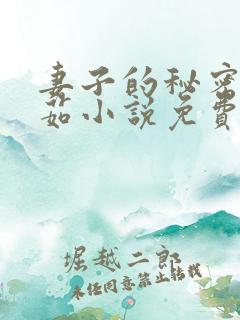 妻子的秘密
茹小说免费
堀越二郎
未经同意禁止转载